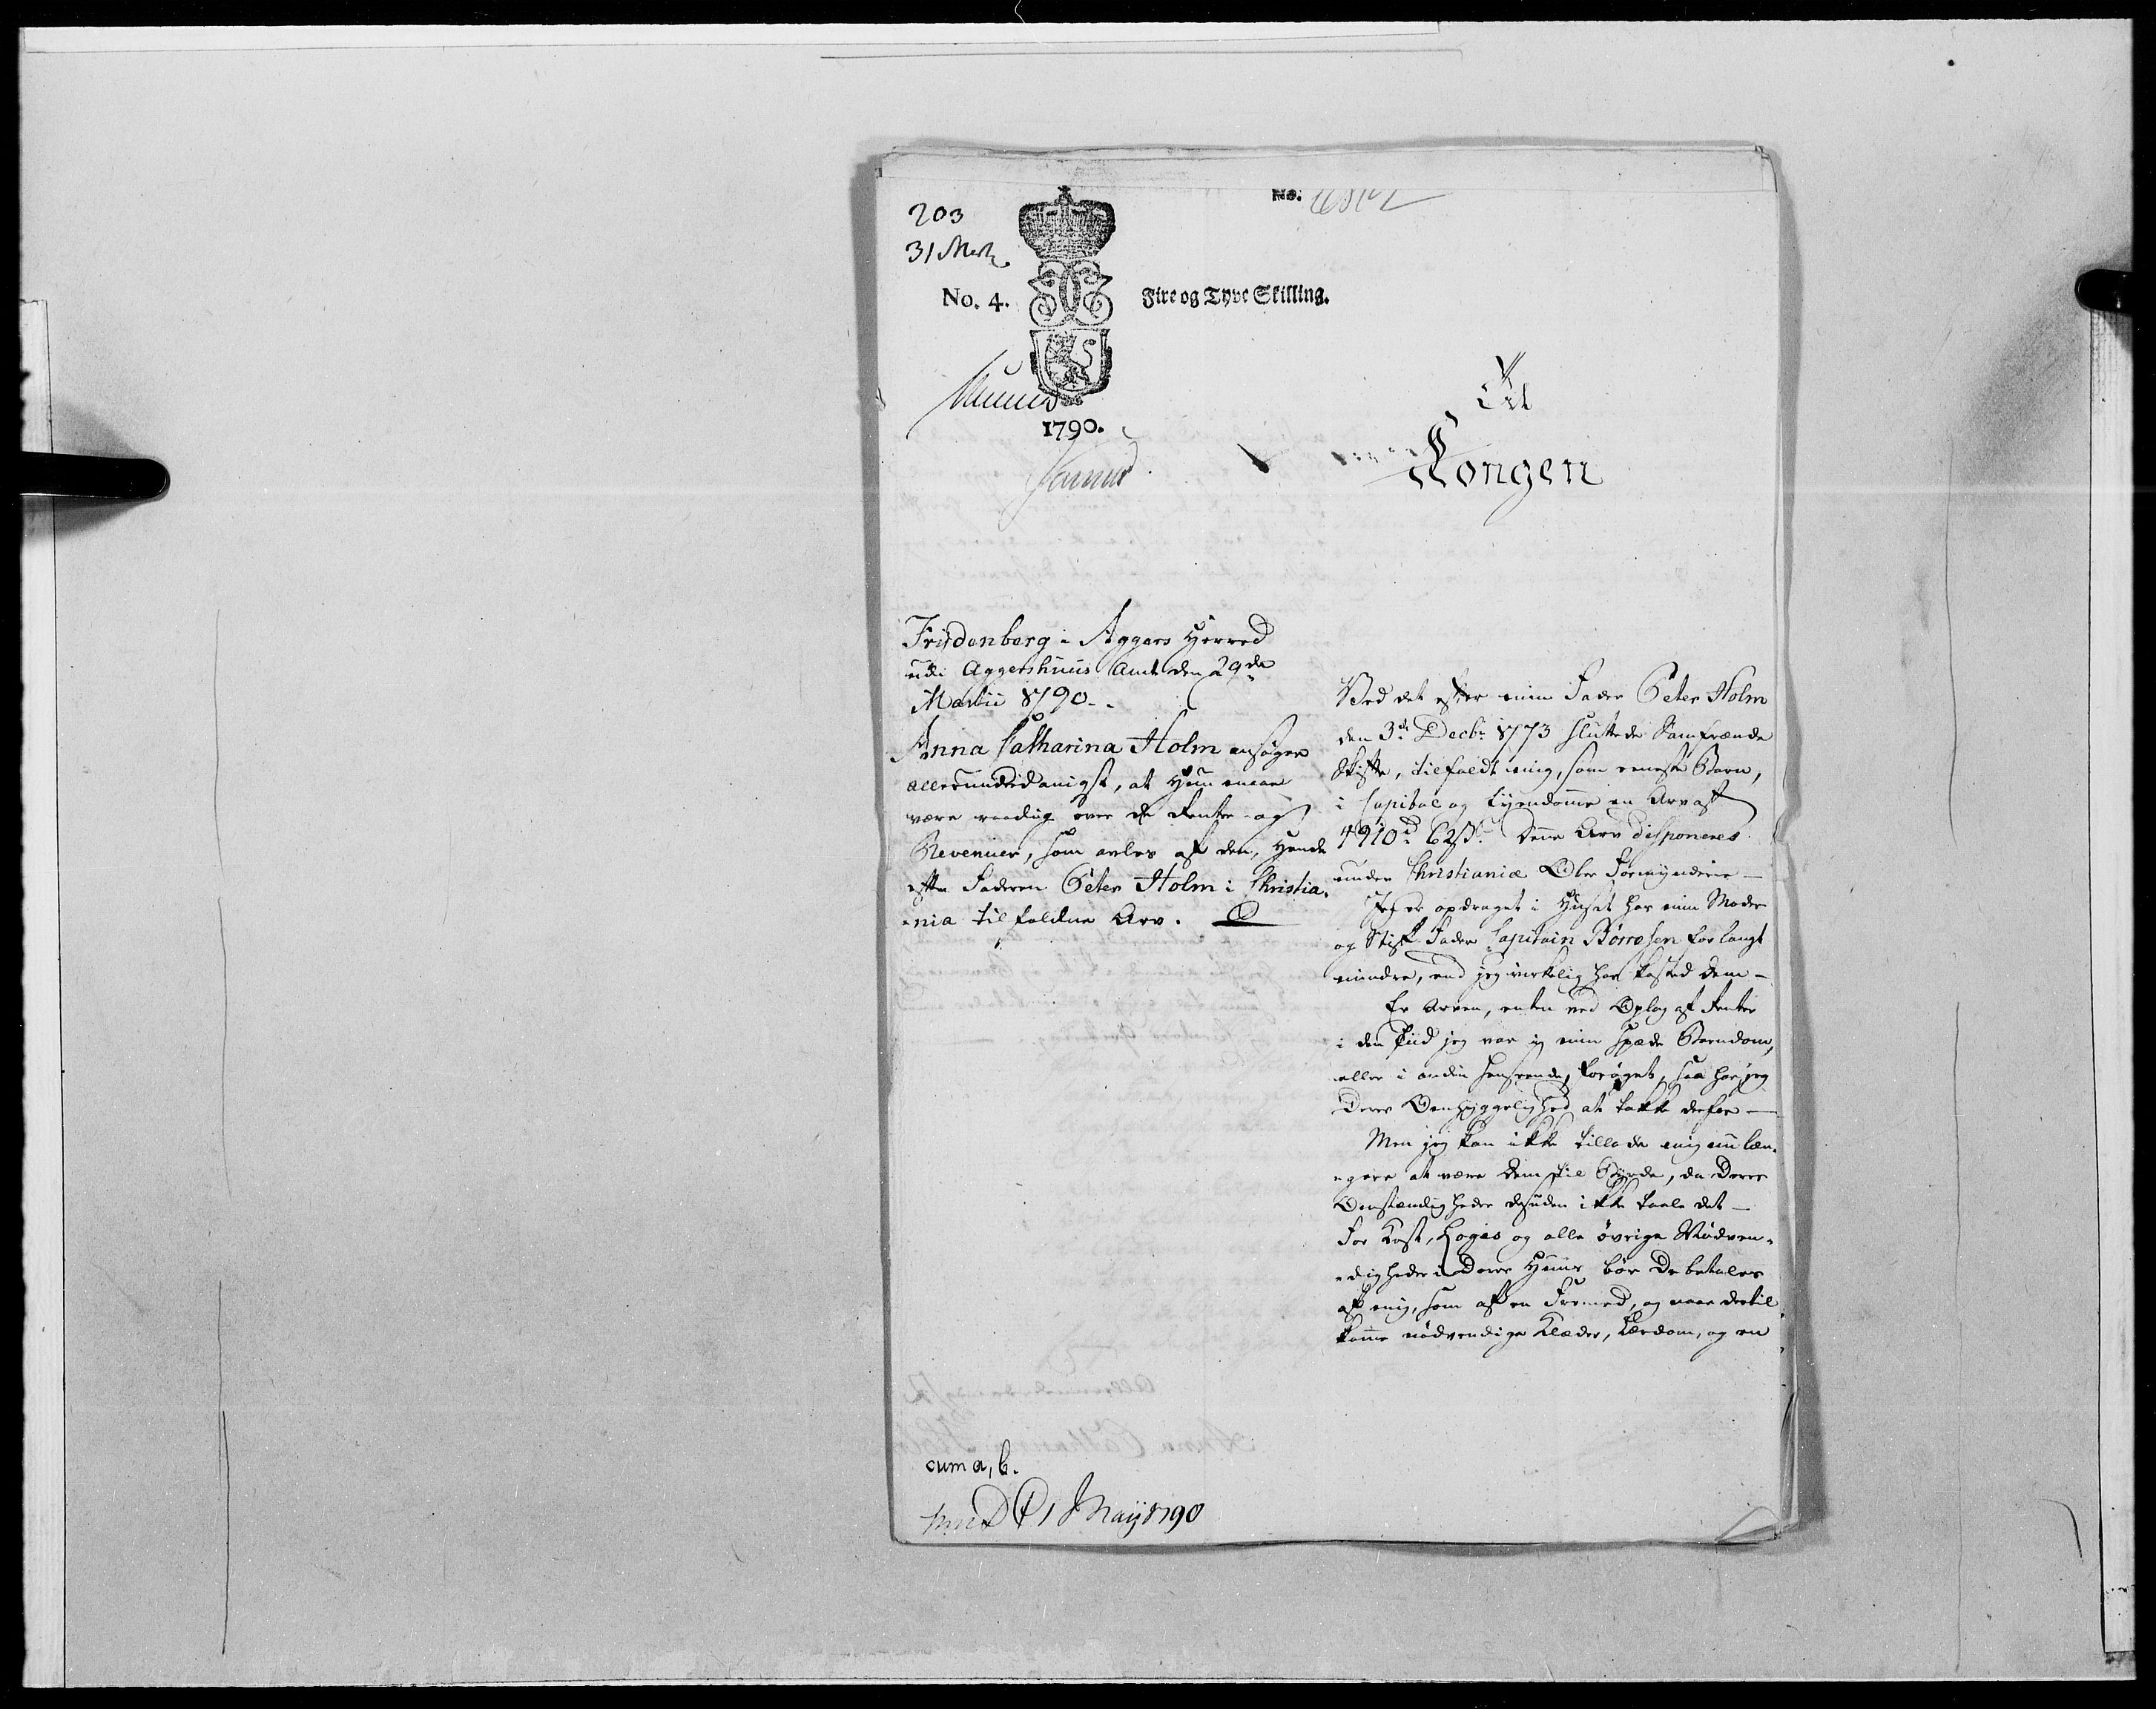 No.
203
31 Mertz.
No. 4.
Fire og Tyve Skilling.
1790.
Til
Kongen
Frydenberg i Aggers Herred
udi Aggershuus Amt den 29de
Martii 1790.
Anna Catharina Holm ansøger
allerunderdanigst, at Hun maae
være raadig over de Renter og
Revenuer, som avles af den, Hende
efter Faderen Peter Holm i Christia-
nia tilfaldne Arv.
Ved det efter min Fader Peter Holm
den 3de Decbr 1773 sluttede Samfrænde
Skifte, tilfaldt mig, som eneste Barn,
i Capital og Eyendomme en Arv af
4910 rd 62 s. Denne Arv disponeres
under Christianiæ Over Formynderie —
Jeg er opdraget i Huset hos min Moder
og Stif-Fader Capitain Børresen for langt
mindre, end jeg virkelig har kosted dem —
Er Arven, enten ved Oplag af Renter
i den Tiid jeg var i min spæde Barndom,
eller i anden henseende, forøget, saa har jeg
Deres Omhyggelighed at takke derfor —
Men jeg kan ikke tillade mig nu læn-
gere at være dem til Byrde, da Deres
Omstændigheder desuden ikke taale det —
For Kost, Logis og alle øvrige Nødven-
digheder i Deres Huus bør De betales
af mig, som af en Fremmed, og naar dertil
komme nødvendige Klæder, Lærdom, og en
cum a, b.
D 1 Maij 1790